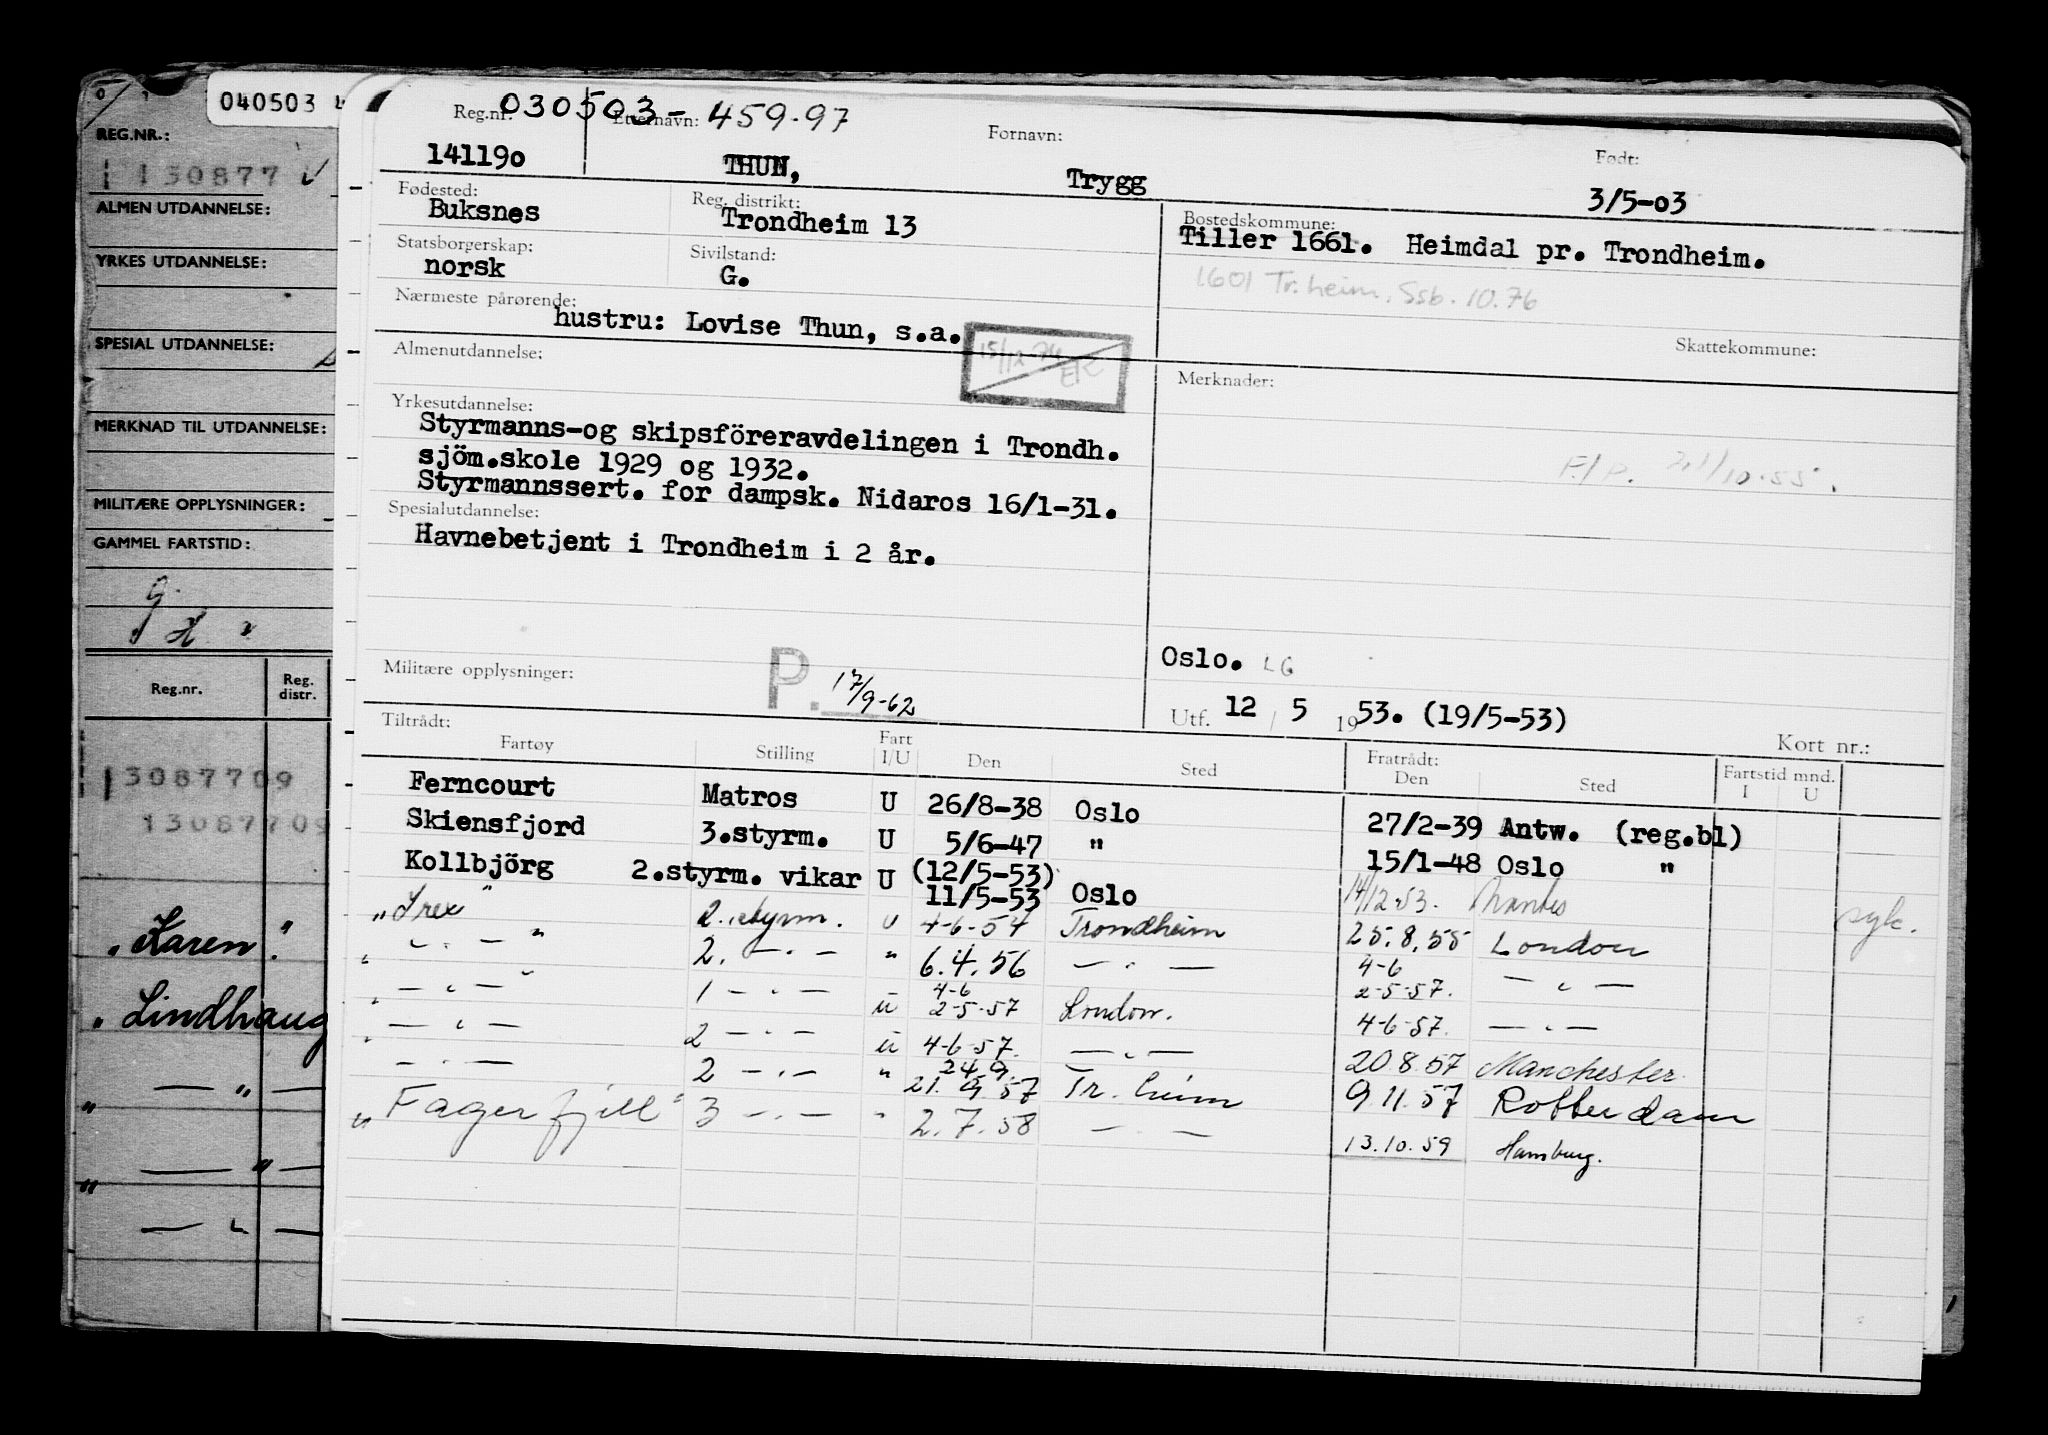 040503
REG.NR.:
130877
ALMEN UTDANNELSE:
YRKES UTDANNELSE:
SPESIAL UTDANNELSE:
MERKNAD TIL UTDANNELSE:
MILITÆRE OPPLYSNINGER:
GAMMEL FARTSTID:
Reg.nr. Reg. distr.
13087709
13087709
"Karen"
"Lindhaug
" — " —
" — " —
— " —
030503-459.97
Reg.nr. Etternavn: Fornavn: Født:
141190 THUN, Trygg 3/5-03
Fødested: Reg. distrikt: Bostedskommune:
Buksnes Trondheim 13 Tiller 1661. Heimdal pr. Trondheim.
Statsborgerskap: Sivilstand:
norsk G. 1601 Tr.heim, Ssb. 10.76
Nærmeste pårørende:
hustru: Lovise Thun, s.a.
15/12-74
Skattekommune:
Almenutdannelse: Merknader:
Yrkesutdannelse:
Styrmanns-og skipsföreravdelingen i Trondh.
sjöm.skole 1929 og 1932.
Styrmannssert. for dampsk. Nidaros 16/1-31.
Spesialutdannelse:
Havnebetjent i Trondheim i 2 år.
Oslo. LG
Militære opplysninger: P. 17/9-62
Utf. 12 / 5 1953. (19/5-53)
Kort nr.:
Tiltrådt: Fratrådt:
Fartøy Stilling Fart I/U Den Sted Den Sted Fartstid mnd. I U
Ferncourt Matros U 26/8-38 Oslo 27/2-39 Antw. (reg.bl)
Skiensfjord 3.styrm. U 5/6-47 " 15/1-48 Oslo "
Kollbjörg 2.styrm. vikar U (12/5-53)
11/5-53 Oslo 14/12.53. Nantes syk.
"Irex" 2.styrm. U 4-6-54 Trondheim 25.8.55 London
" — " — " 2. — " — " 6.4.56 — " — 4-6
2-5-57. — " —
" — " — 1 — " — ü 4-6
2-5-57 London. 4-6-57. — " —
" — " — 2 — " — ü 4-6-57. — " — 20.8.57 Manchester
— " — 2 — " — " 24.9.
21.9.57 Tr.heim 9.11.57 Rotterdam
"Fagerfjell" 3 — " — " 2.7.58 — " — 13.10.59 Hamburg.